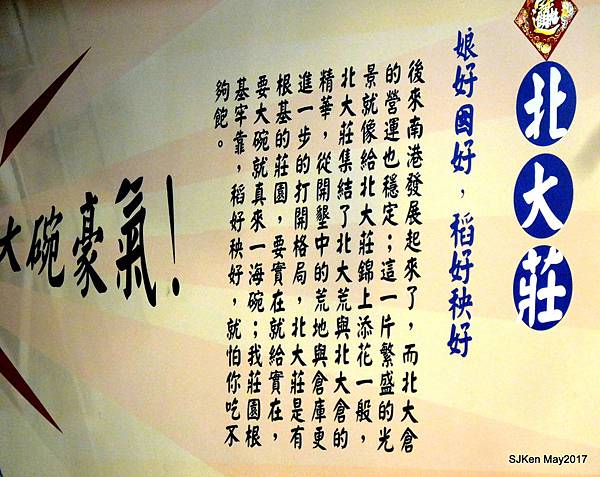 北大莊
娘好囡好，稻好秧好
後來南港發展起來了，而北大倉
的營運也穩定；這一片繁盛的光
景就像給北大莊錦上添花一般，
北大莊集結了北大荒與北大倉的
精華，從開墾中的荒地與倉庫更
進一步的打開格局，北大莊是有
根基的莊園，要實在就給實在，
要大碗就真來一海碗；我莊園根
基牢靠，稻好秧好，就怕你吃不
夠飽。
大碗豪氣！
SJKen May2017